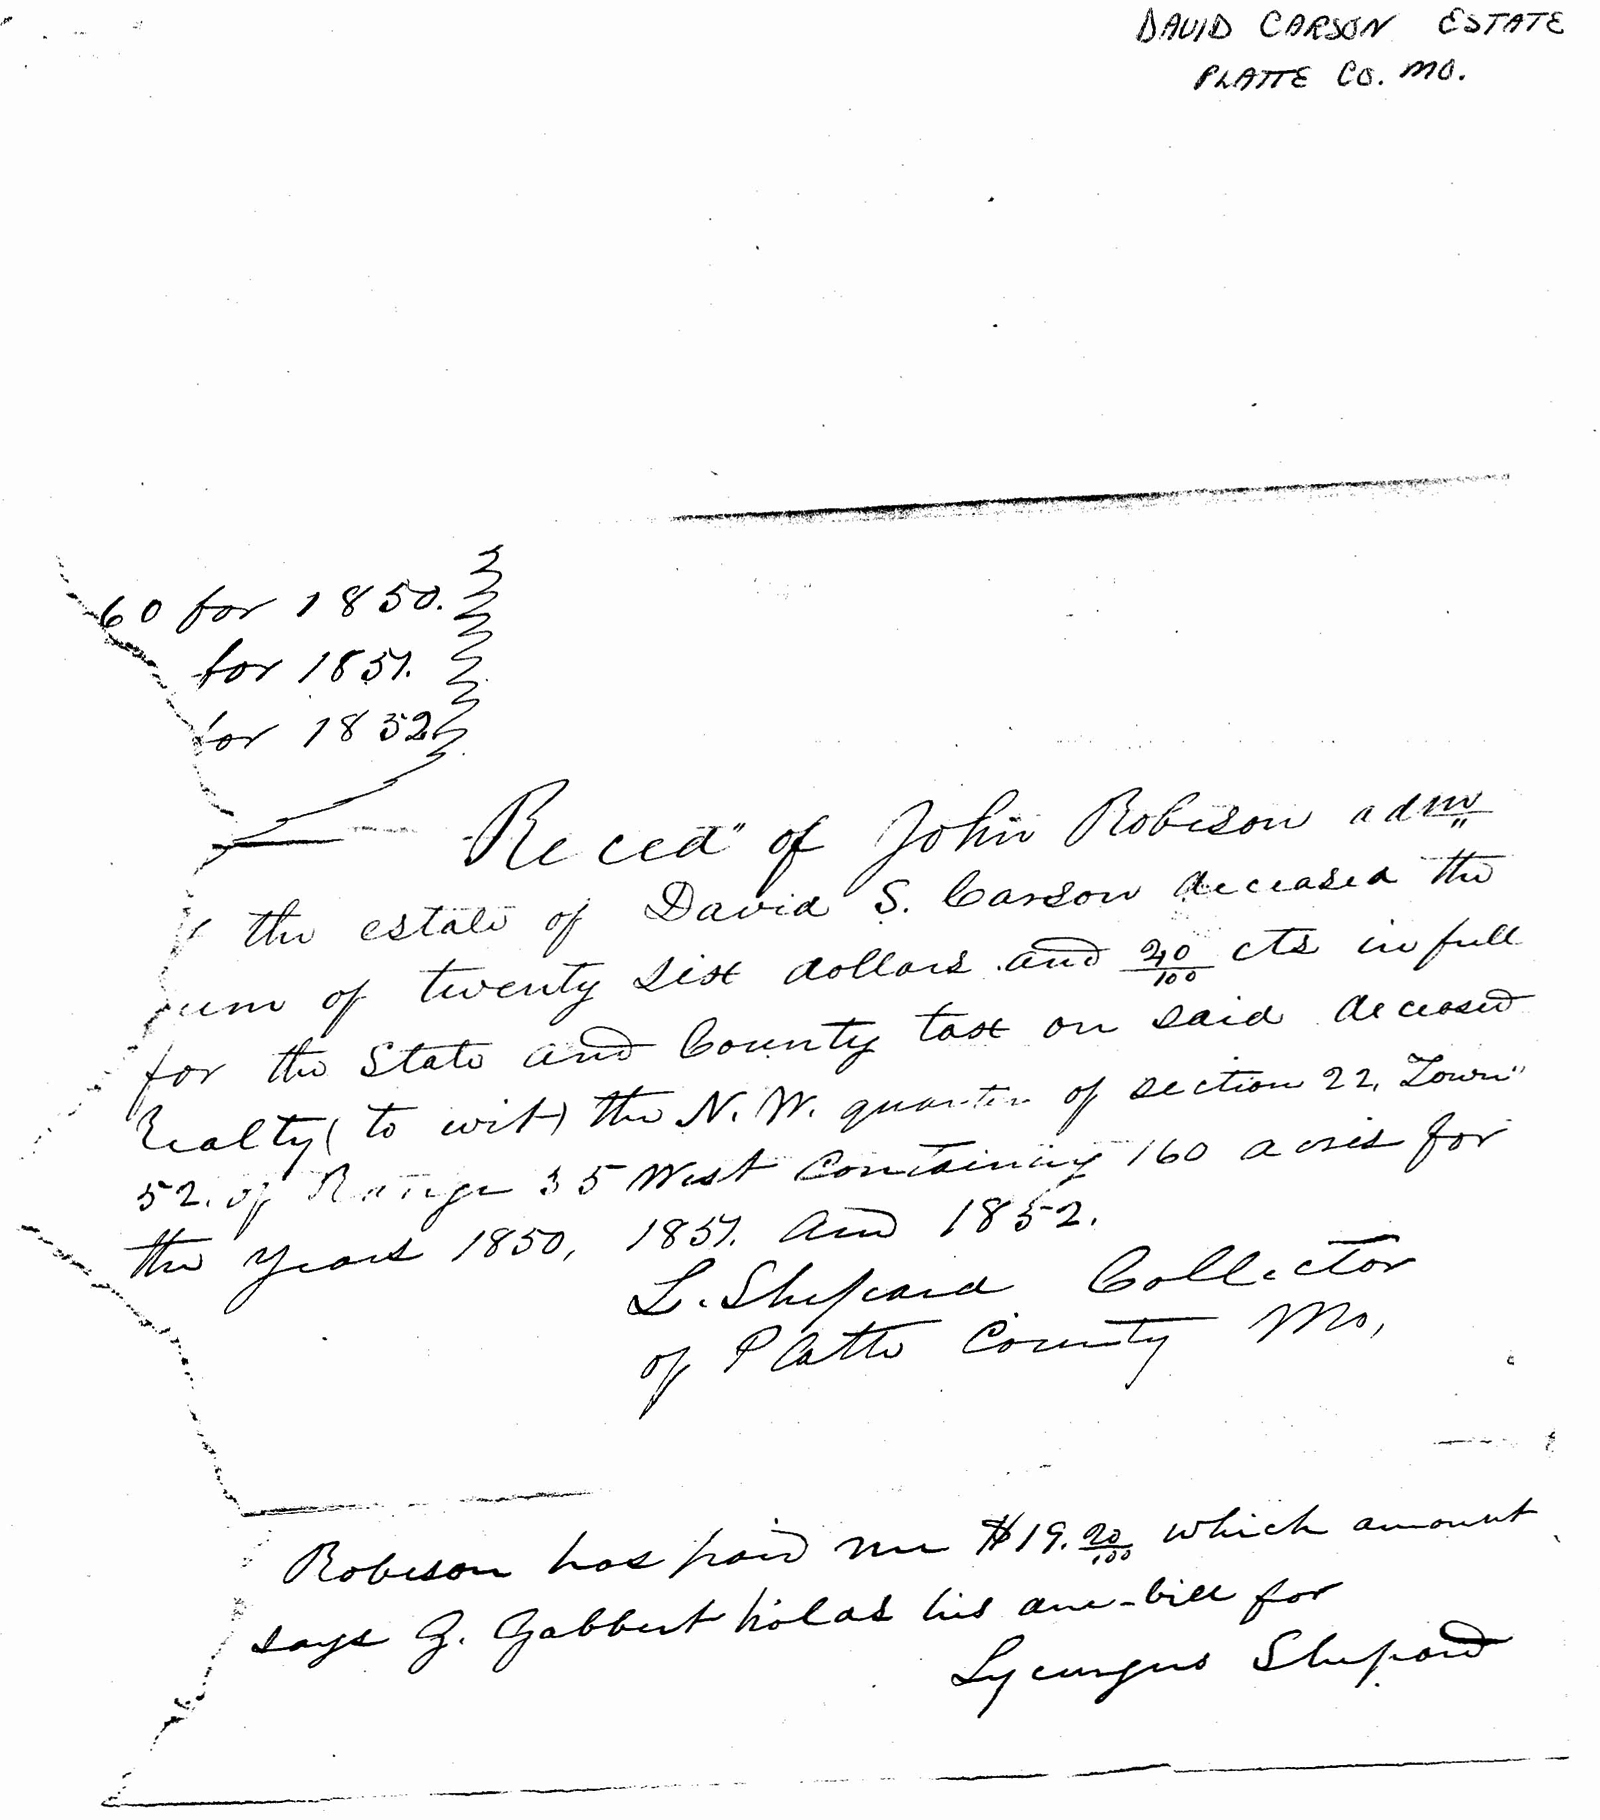 DAVID CARSON ESTATE
PLATTE CO. MO.
60 for 1850.
for 1851.
for 1852
Receed" of John Robison adm
the estate of David S. Carson deceased the
um of twenty six dollars and 40/100 cts in full
for the State and County tax on said deceased
Realty (to wit) the N. W. quarter of section 22, Town"
52. of Range 35 West Containing 160 acres for
the years 1850, 1851. and 1852.
L. Shepard Collector
of Platte County Mo,
Robison has paid me $19.20/100 which amount
says G. Gabbert holds his due-bill for
Lycurgus Shepard